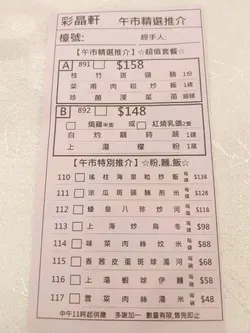 彩晶軒 午市精選推介
檯號: 經手人:
【午市精選推介】☆超值套餐☆
A 891 □ $158
枝竹斑頭腩 1份
菜甫肉崧炒飯 1碟
珍菌浸菜苗
B 892 □ $148
燒雞半隻 或 □紅燒乳鴿2隻
白灼 蔬 1碟
上湯檬粉
【午市特別推介】☆粉,麵,飯☆
110 □ 瑤柱海泉炒飯 每碟 $138
111 □ 涼瓜斑頭腩煎米 每碟 $128
112 □ 蠔皇八珍炒河 每碟 $118
113 □ 上海炒烏冬 每碟 $98
114 □ 味菜肉絲炆米 每碟 $88
115 □ 香茜皮蛋斑球湯河 每碗 $68
116 □ 上湯蝦球伊麵 每碗 $58
117 □ 雪菜肉絲湯米 每碗 $48
中午11時起供應 多謝加一 數量有限,售完即止